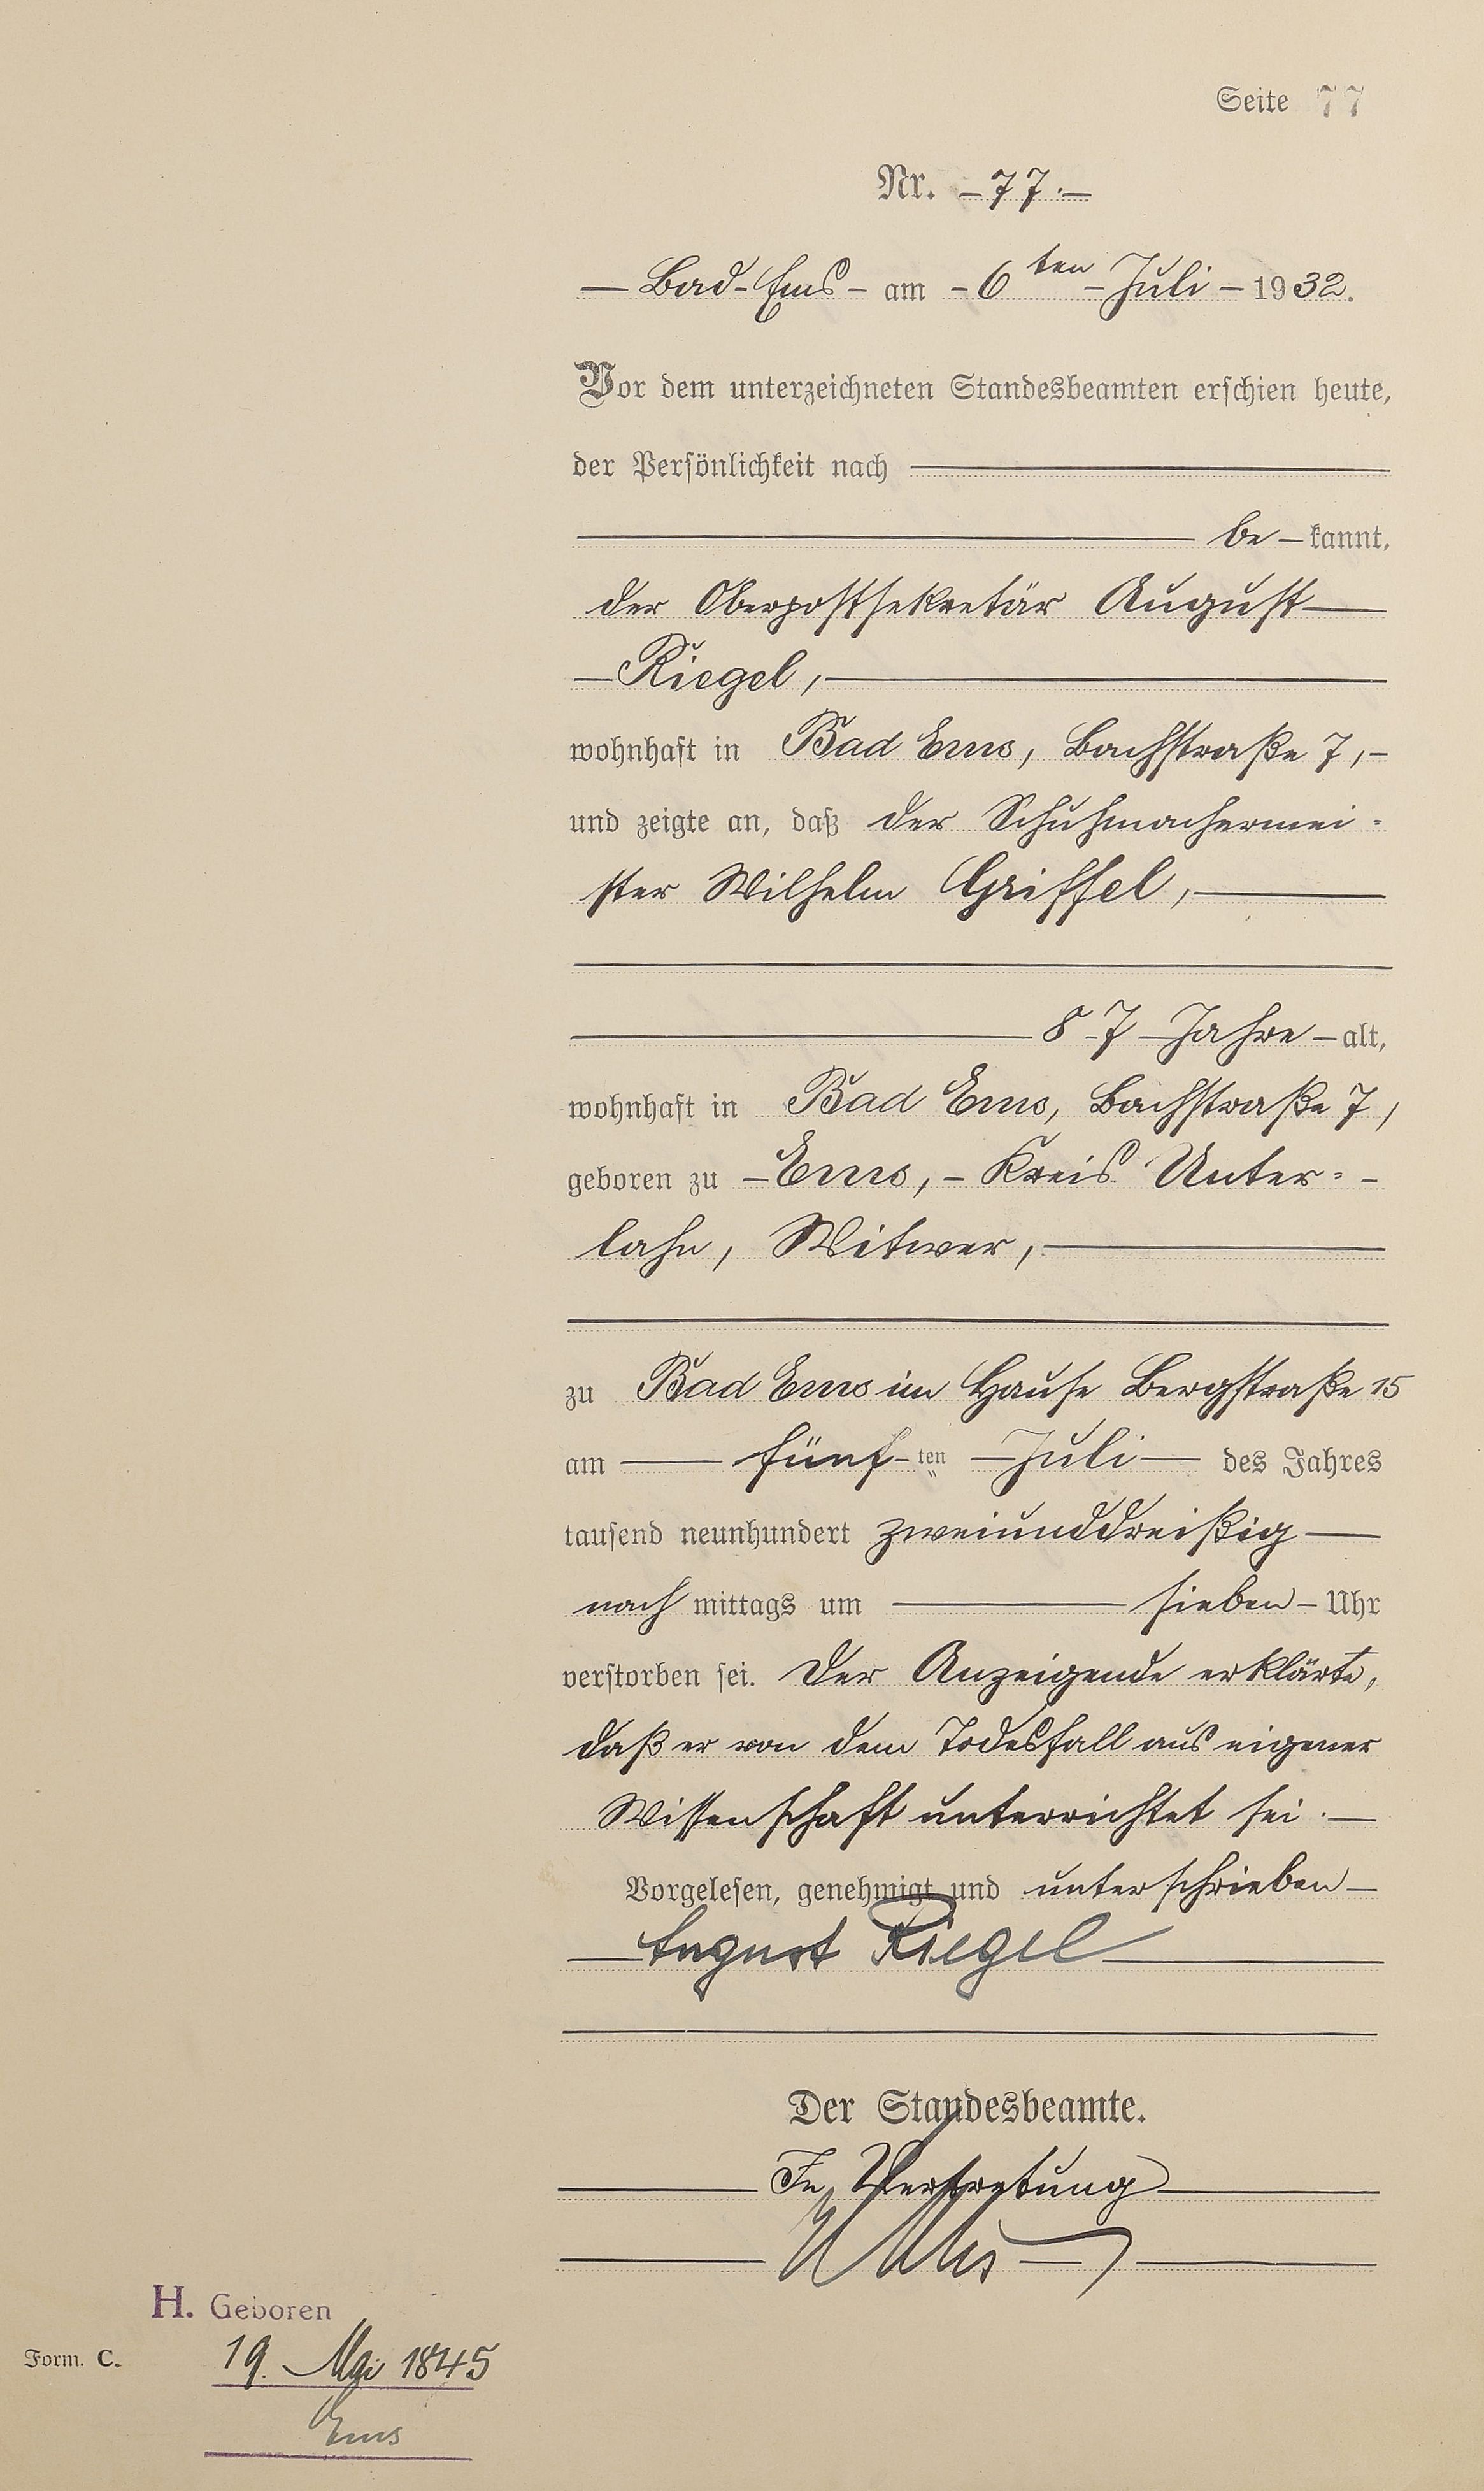 Seite 77
Nr. – 77. –
– Bad-Ems – am – 6ten – Juli – 1932.
Vor dem unterzeichneten Standesbeamten erschien heute,
der Persönlichkeit nach
be – kannt,
der Oberpostsekretär August
– Riegel, –
wohnhaft in Bad Ems, Bachstraße 7, –
und zeigte an, daß der Schuhmachermei-
ster Wilhelm Griffel, –
87 – Jahre – alt,
wohnhaft in Bad Ems, Bachstraße 7,
geboren zu – Ems, – Kreis Unter- –
lahn, Witwer, –
zu Bad Ems im Hause Bergstraße 15
am – fünf-ten – Juli – des Jahres
tausend neunhundert zweiunddreißig –
nach mittags um – sieben – Uhr
verstorben sei. Der Anzeigende erklärte,
daß er von dem Todesfall aus eigener
Wissenschaft unterrichtet sei. –
Vorgelesen, genehmigt und unterschrieben –
– August Riegel –
Der Standesbeamte.
In Vertretung
H. Geboren
19. Mai 1845
Form. C.
Ems